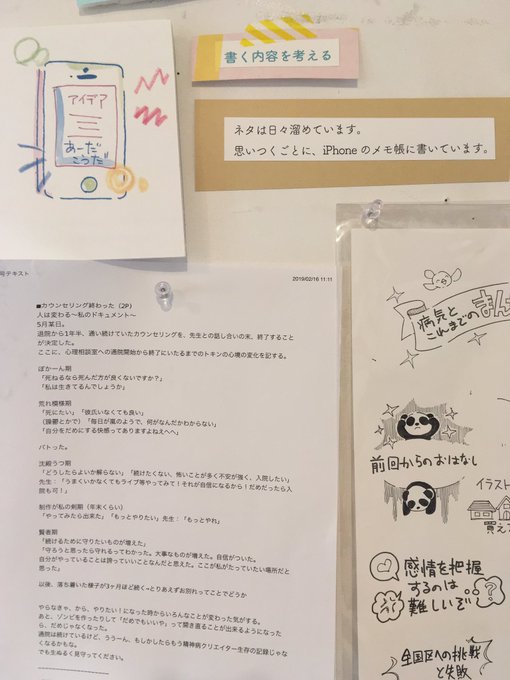 アイデア
あーだ
こうだ
書く内容を考える
ネタは日々溜めています。
思いつくごとに、iPhoneのメモ帳に書いています。
号テキスト
2019/02/16 11:11
■カウンセリング終わった（2P）
人は変わる〜私のドキュメント〜
5月某日。
退院から1年半、通い続けていたカウンセリングを、先生との話し合いの末、終了すること
が決定した。
ここに、心理相談室への通院開始から終了にいたるまでのトキンの心境の変化を記する。
ぽかーん期
「死ねるなら死んだ方が良くないですか？」
「私は生きてるんでしょうか」
荒れ模様期
「死にたい」「彼氏いなくても良い」
（躁鬱とかで）「毎日が嵐のようで、何がなんだかわからない」
「自分をだめにする快感ってありますよねえへへ」
バトった。
沈殿うつ期
「どうしたらよいか解らない」「続けたくない、怖いことが多く不安が強く、入院したい」
先生：「うまくいかなくてもライブ等やってみて！それが自信になるから！だめだったら入
院も可！」
制作が私の剣期（年末くらい）
「やってみたら出来た」「もっとやりたい」先生：「もっとやれ」
賢者期
「続けるために守りたいものが増えた」
「守ろうと思ったら守れるってわかった。大事なものが増えた。自信がついた。
自分がやっていることは誇っていいことなんだと思えた。ここが私がたっていたい場所だと
思った」
以後、落ち着いた様子が3ヶ月ほど続く→とりあえずお別れってことでどうか
やらなきゃ、から、やりたい！になった時からいろんなことが変わった気がする。
あと、ゾンビを作ったりして「だめでもいいや」って開き直ることが出来るようになった
ら、だめじゃなくなった。
通院は続けているけど、ううーん、もしかしたらもう精神病クリエイター生存の記録じゃな
くなるかもな。
でも生ぬるく見守ってください。
病気と
これまでの
まん
前回からのおはなし
イラスト
買え
感情を把握
するのは
難しいぞ
全国区への挑戦
と失敗